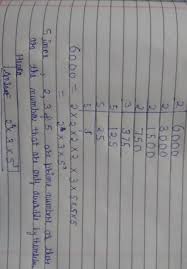 2 | 6000
2 | 3000
2 | 1500
2 | 750
3 | 375
5 | 125
5 | 25
5 | 5
6000 = 2 x 2 x 2 x 2 x 3 x 5 x 5 x 5
= 2⁴ x 3 x 5³
Since 2, 3 & 5 are prime number as these
are the number that are only divisible by
Answer = 2⁴ x 3 x 5³